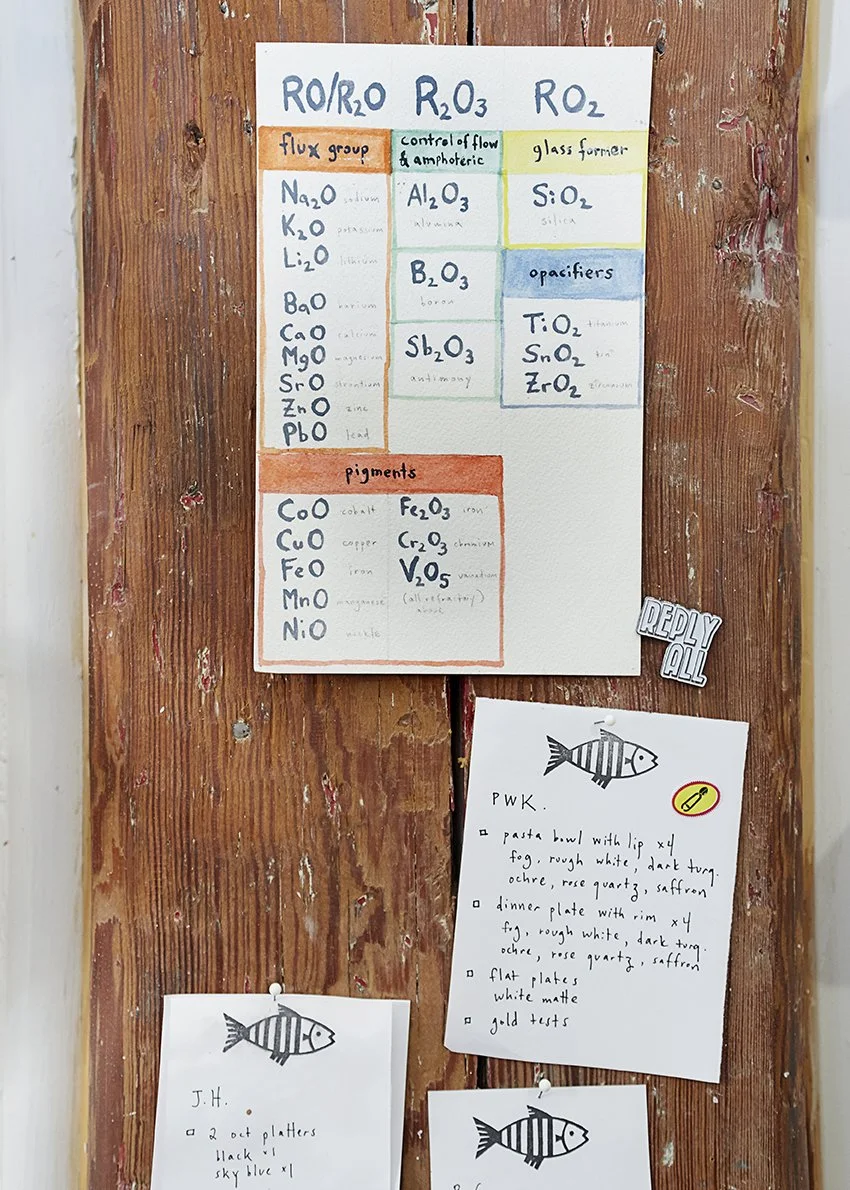 RO/R₂O R₂O₃ RO₂
flux group
Na₂O sodium
K₂O potassium
Li₂O lithium
BaO barium
CaO calcium
MgO magnesium
SrO strontium
ZnO zinc
PbO lead
control of flow
& amphoteric
Al₂O₃
alumina
B₂O₃
boron
Sb₂O₃
antimony
glass former
SiO₂
silica
opacifiers
TiO₂ titanium
SnO₂ tin
ZrO₂ zirconium
pigments
CoO cobalt
CuO copper
FeO iron
MnO manganese
NiO nickle
Fe₂O₃ iron
Cr₂O₃ chromium
V₂O₅ vanadium
(all refractory)
above
REPLY
ALL
PWK.
pasta bowl with lip x4
fog, rough white, dark turq.
ochre, rose quartz, saffron
dinner plate with rim x4
fog, rough white, dark turq.
ochre, rose quartz, saffron
flat plates
white matte
gold tests
J.H.
2 oct platters
black x1
sky blue x1